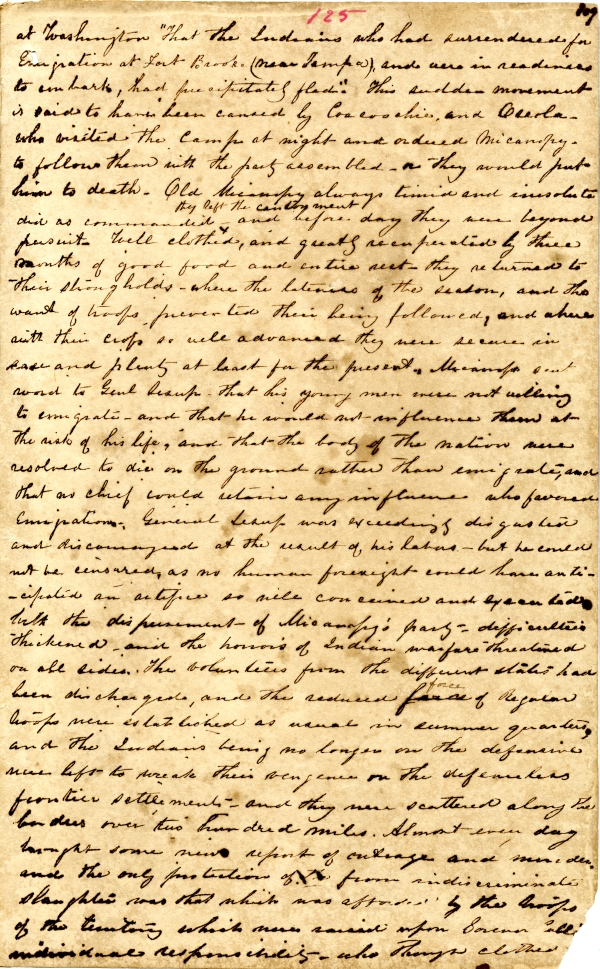 125
at Washington "That the Indians who had surrendered for
Emigration at Fort Brooke (near Tampa), and were in readiness
to embark, had precipitately fled". This sudden movement
is said to have been caused by Coacoochie, and Osceola
who visited the Camp at night and ordered Micanopy
to follow them with the party assembled - or they would put
him to death - Old Micanopy always timid and irresolute
they left the cantonment
did as commanded, and before day they were beyond
pursuit Well clothed, and greatly recuperated by three
months of good food and entire rest - they returned to
their strongholds - where the lateness of the season, and the
want of troops prevented their being followed, and where
with their crops so well advanced they were secure in
ease and plenty at least for the present. Micanopy sent
word to Genl Jesup - that his young men were not willing
to emigrate - and that he would not influence them at
the risk of his life, and that the body of the nation were
resolved to die on the ground rather than emigrate, and
that no chief could retain any influence who favored
Emigration. General Jesup was exceedingly disgusted
and discouraged at the result of his labors - but he could
not be censured, as no human foresight could have anti-
-cipated an artifice so well conceived and executed
With the dispersement of Micanopy's party - difficulties
thickened - and the horrors of Indian warfare threatened
on all sides. The volunteers from the different states had
been discharged, and the reduced force of Regular
troops were established as usual in summer quarters,
and the Indians being no longer on the defensive
were left to wreak their vengence on the defenseless
frontier settlements - and they were scattered along the
border over two hundred miles. Almost every day
brought some new report of outrage and murder
and the only protection from indiscriminate
slaughter was that which was afforded by the troops
of the territory which were raised upon Governor
individual responsibility - who though clothed